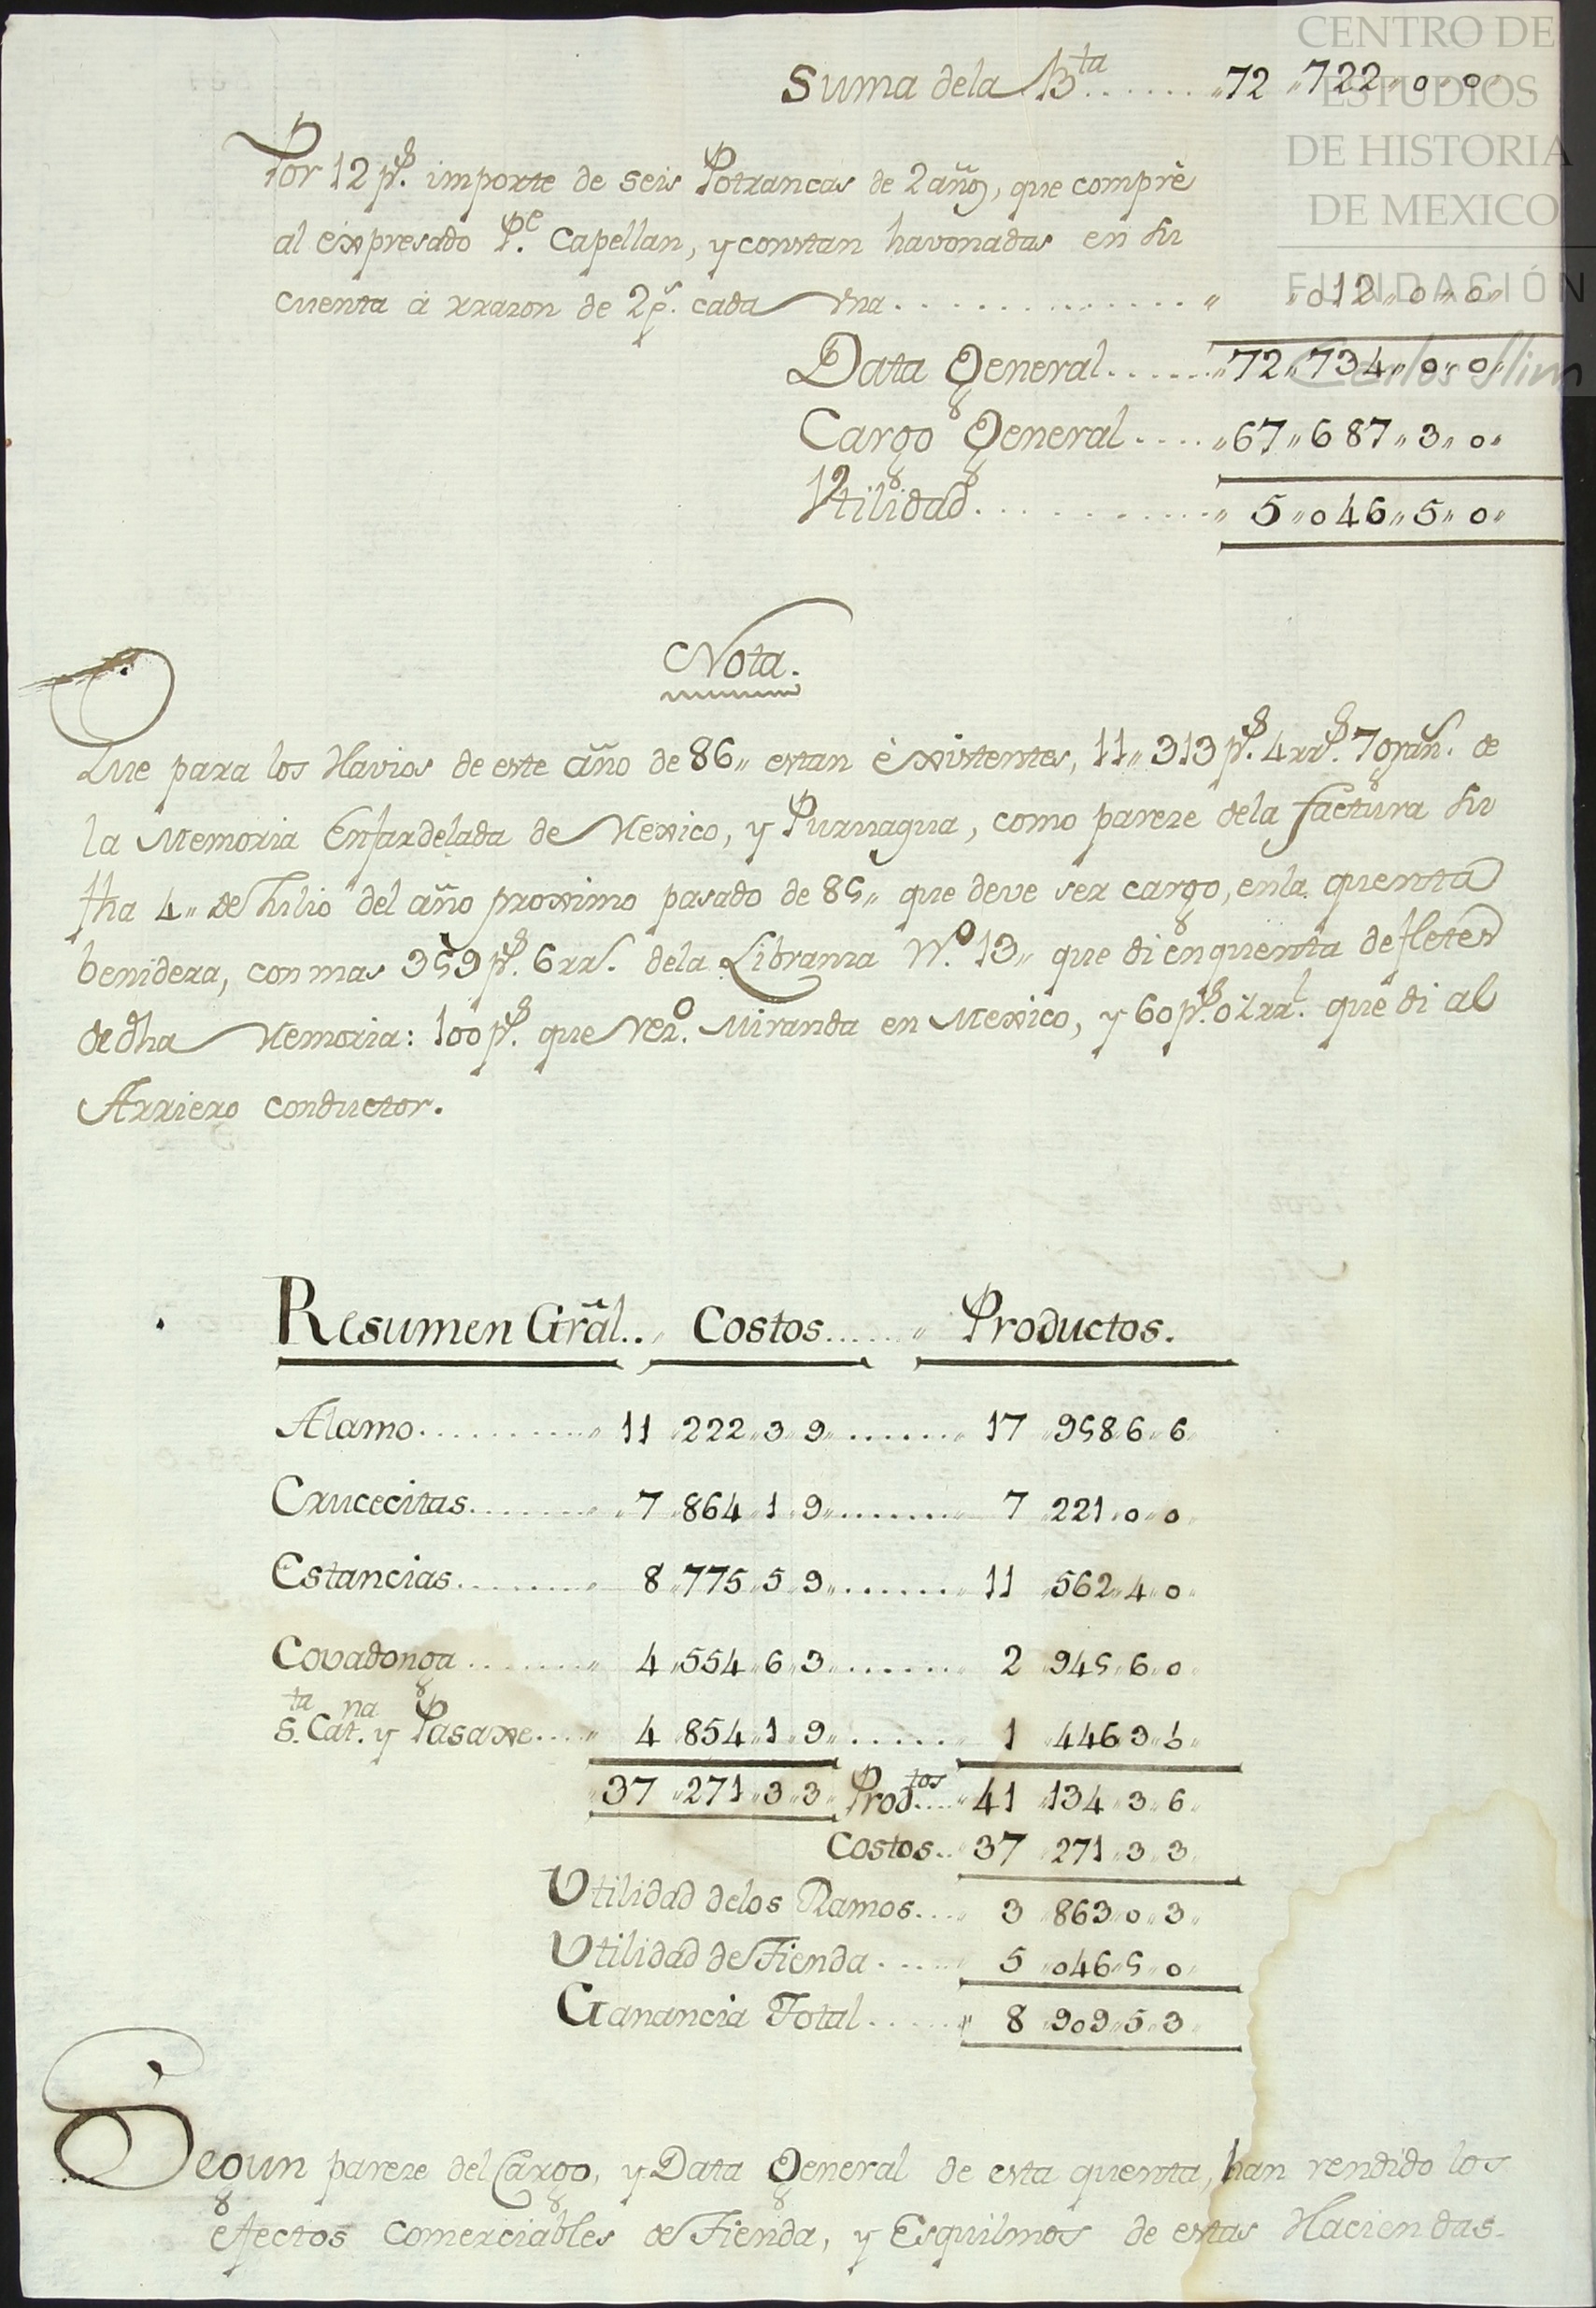 CENTRO DE
ESTUDIOS
DE HISTORIA
DE MEXICO
FUNDACIÓN
Carlos Slim
Suma dela B.ta ...... „72„722„0„0„
Por 12 p.s importe de seis Potrancas de 2 años, que comprè
al expresado P.e Capellan, y constan havonadas en su
cuenta à rrazon de 2 p.s cada vna .............. „ „012„0„0„
Data General ...... „72„734„0„0„
Cargo General .... „67„687„3„0„
Vtilidad .......... „5„046„5„0„
Nota.
Que para los Havios de este año de 86„ estan èxistentes, 11„313 p.s 4 rr.s 7 gran.s de
la Memoria Enfardelada de Mexico, y Puruagua, como pareze dela factura su
fha 4„ de Julio del año proximo pasado de 85„ que deve ser cargo, enla quenta
benidera, con mas 359 p.s 6 rr.s dela Libranza N.º 13„ que di en quenta de fletes
de dha Memoria: 100 p.s que Ven.o Miranda en Mexico, y 60 p.s 02 rr.l que di al
Arriero conductor.
Resumen Gral.. „ Costos ...... „ Productos.
Alamo .......... „ 11„222„3„9„ ...... „ 17„958„6„6„
Crucecitas ........ „ 7„864„1„9„ ...... „ 7„221„0„0„
Estancias ........ „ 8„775„5„9„ ...... „ 11„562„4„0„
Covadonga ........ „ 4„554„6„3„ ...... „ 2„945„6„0„
S.ta Cat.na y Pasaxe .... „ 4„854„1„9„ ...... „ 1„446„3„6„
„37„271„3„3„ Prod.tos .... „41„134„3„6„
Costos.. „37„271„3„3„
Utilidad delos Ramos .... „ 3„863„0„3„
Utilidad de Tienda ..... „ 5„046„5„0„
Ganancia Total ...... „ 8„909„5„3„
Segun pareze del Cargo, y Data General de esta quenta, han rendido los
efectos comerciables de Tienda, y Esquilmos de estas Haciendas-